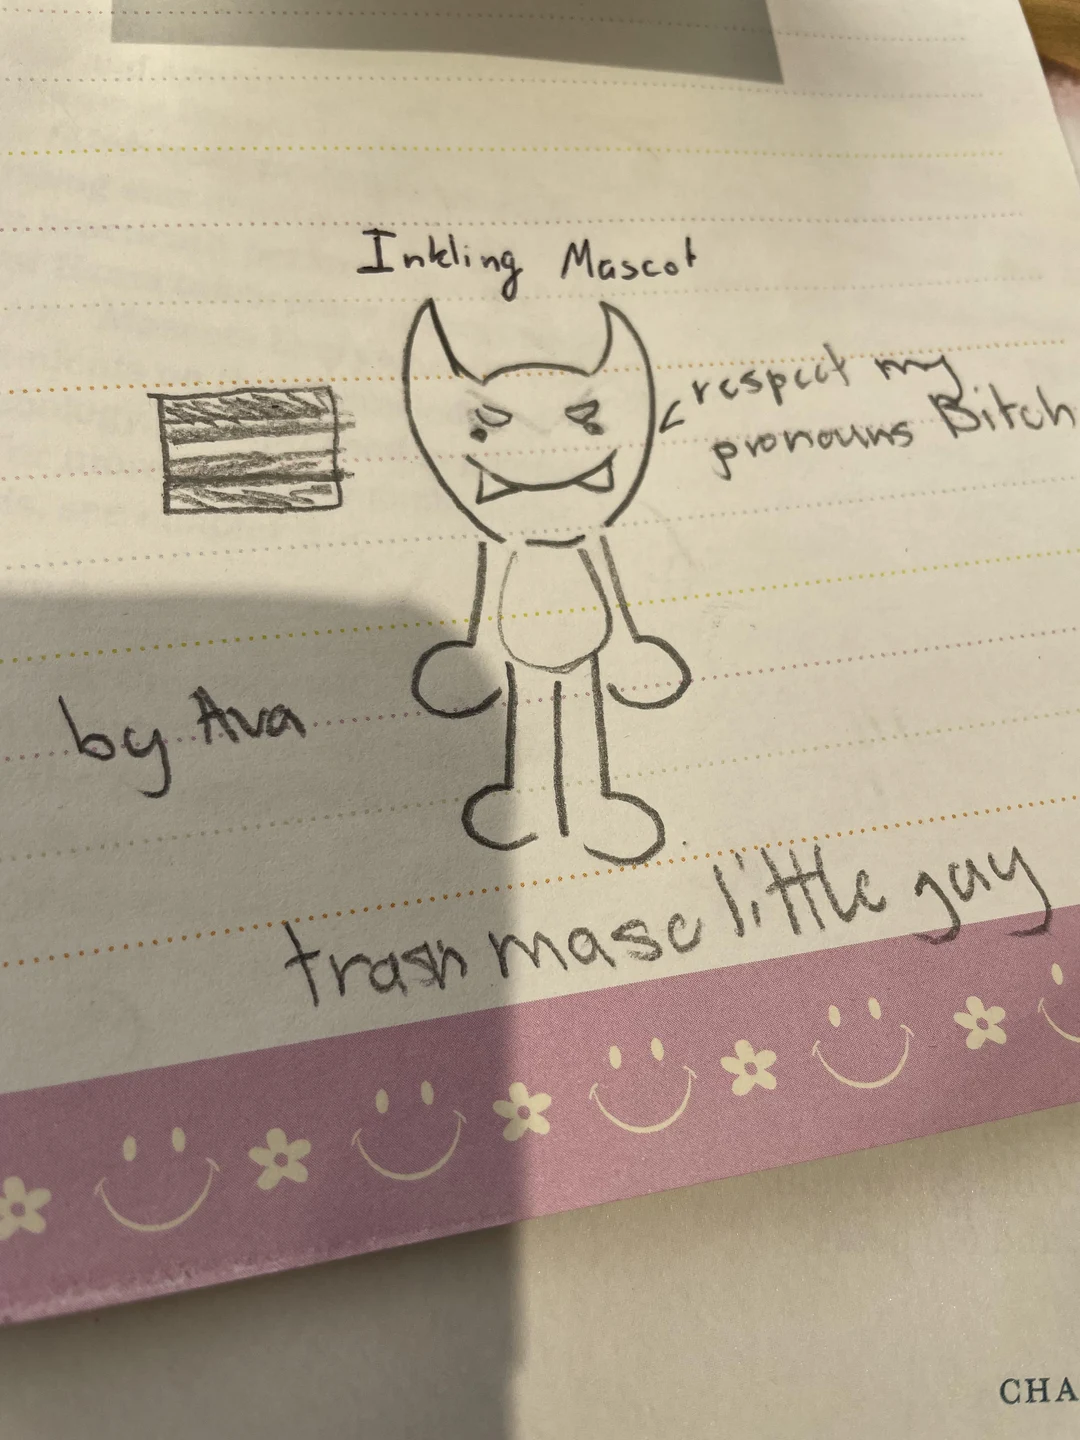 Inkling Mascot
respect my
pronouns Bitch
by Ava
trash masc little gay
CHA